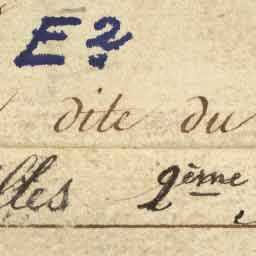 E?
dite du
lles 2ème